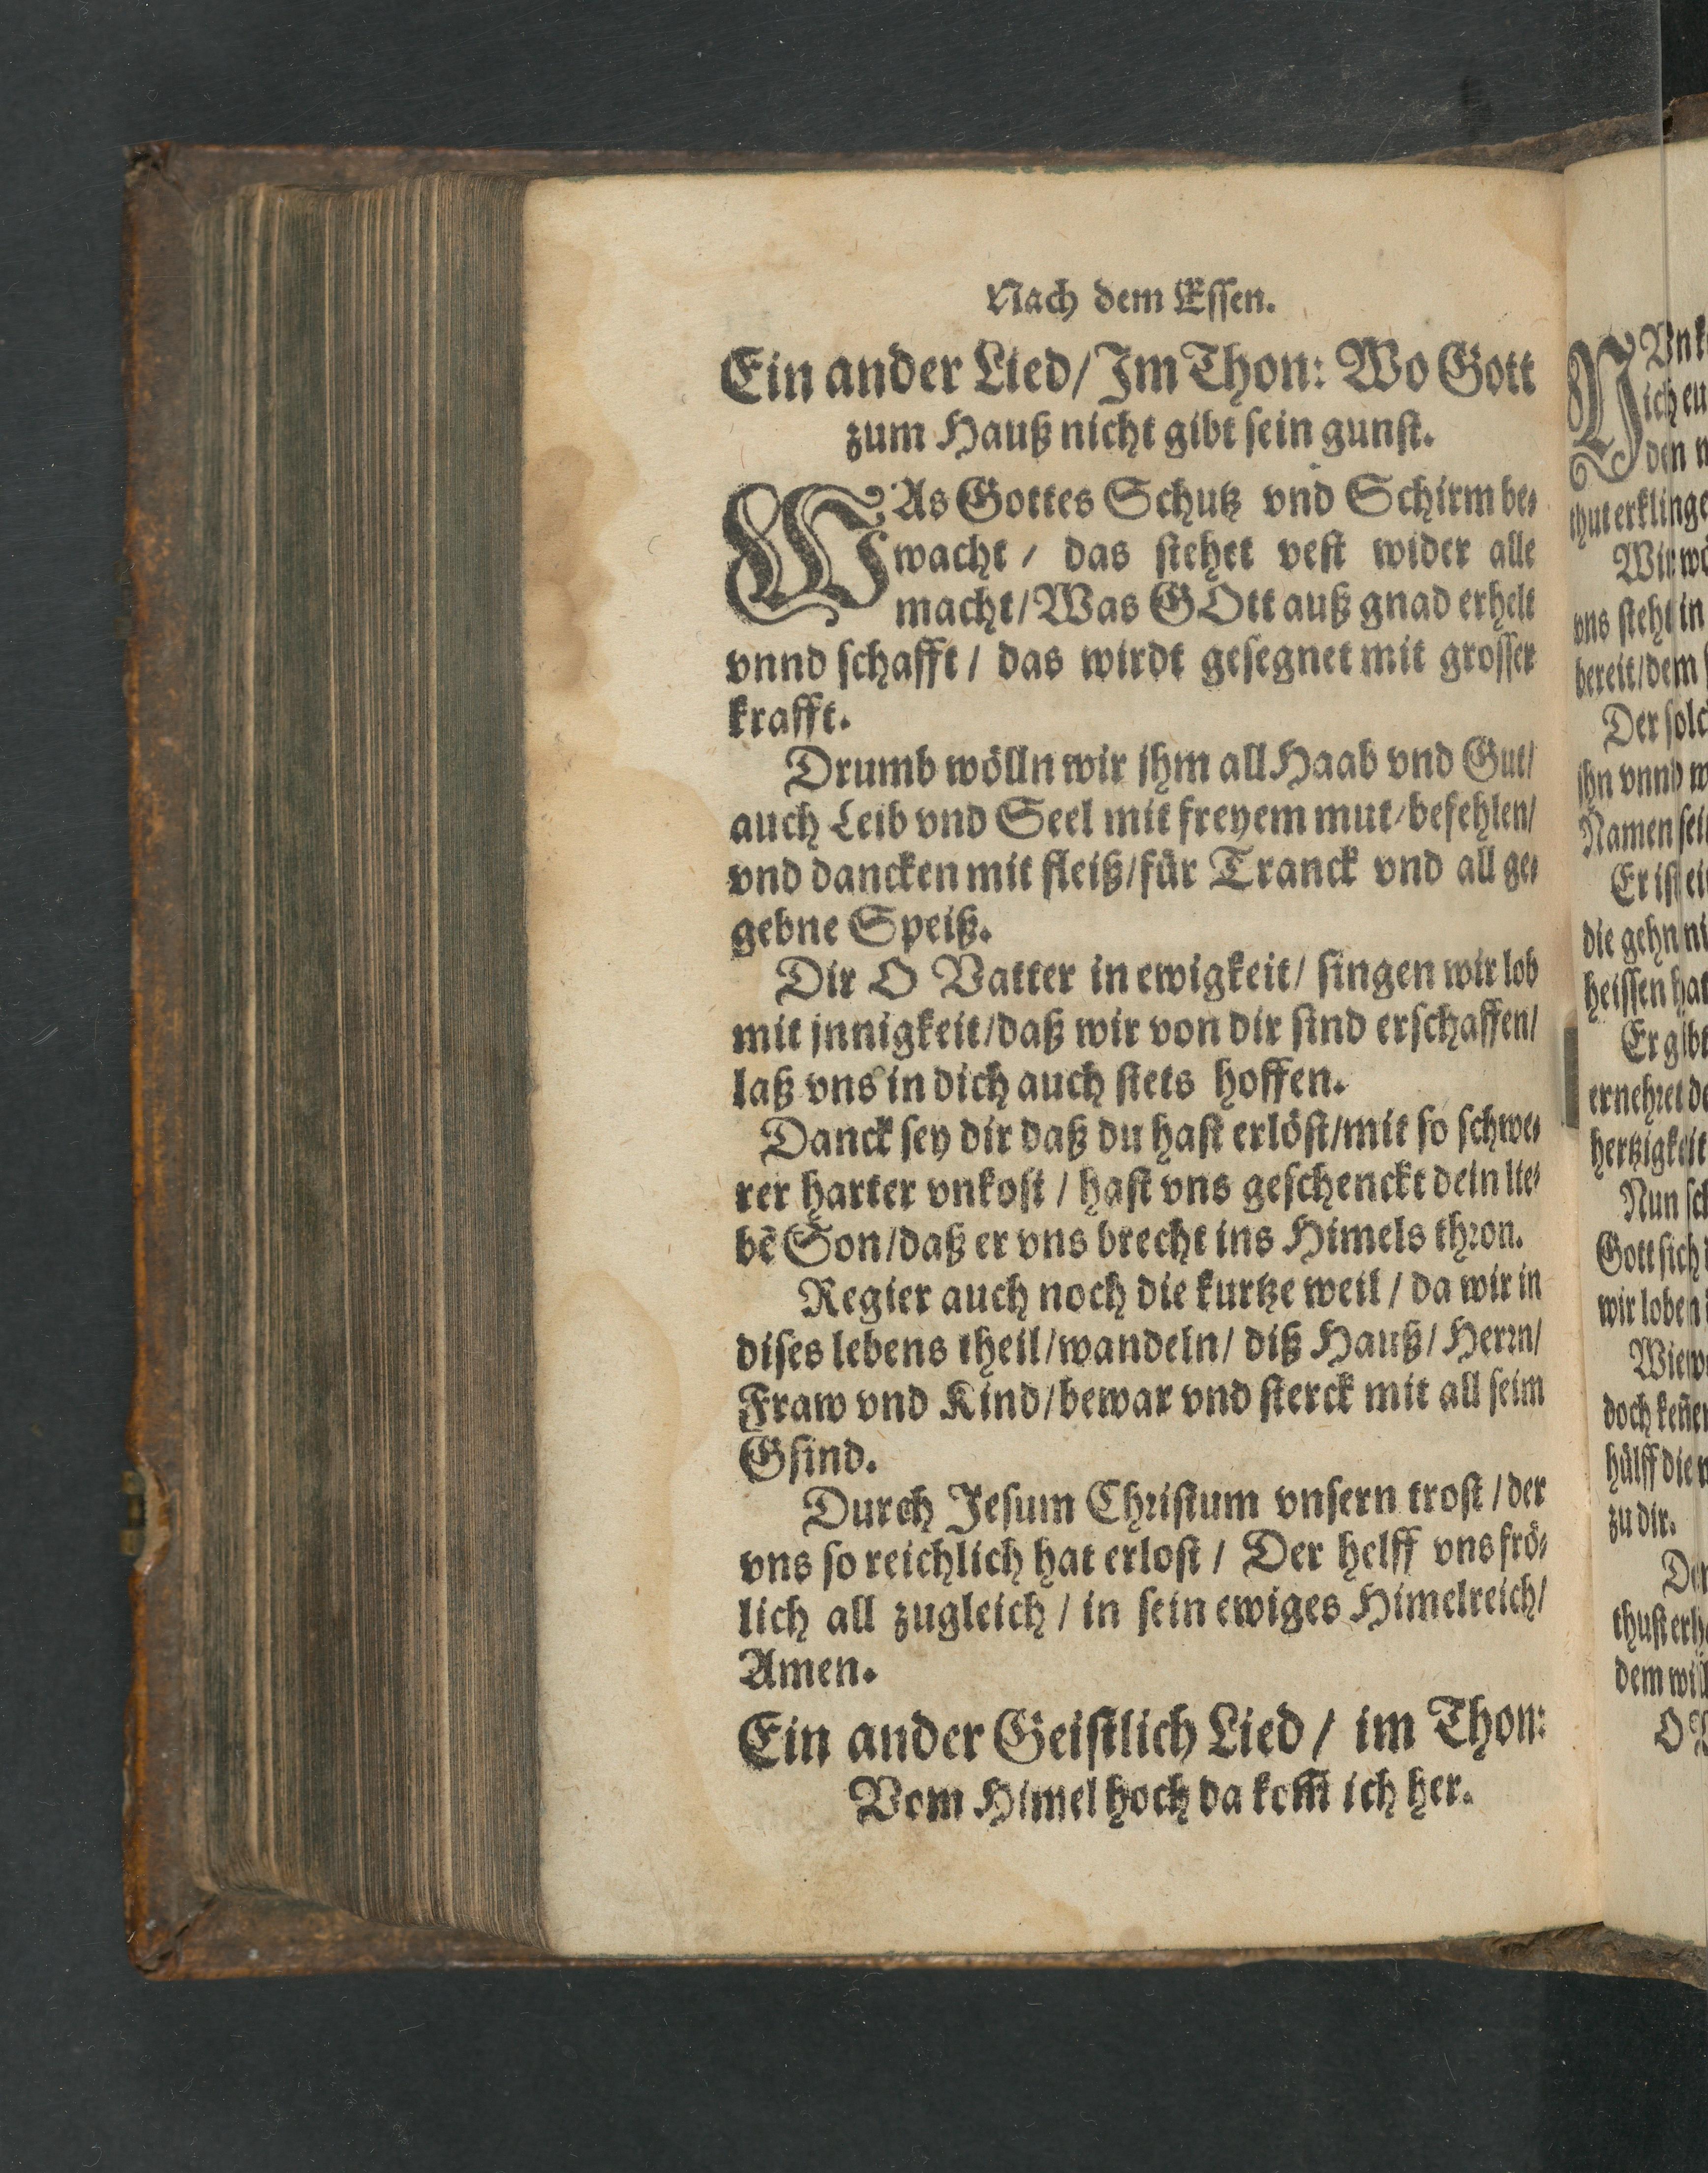 Nach dem Essen.
Ein ander Lied/ Im Thon: Wo Gott
zum Hauß nicht gibt sein gunst.
WAs Gottes Schutz vnd Schirm be-
wacht / das stehet vest wider alle
macht/ Was GOtt auß gnad erhelt
vnnd schafft / das wirdt gesegnet mit grosser
krafft.
Drumb wölln wir jhm all Haab vnd Gut/
auch Leib vnd Seel mit freyem mut/befehlen/
vnd dancken mit fleiß/für Tranck vnd all ge-
gebne Speiß.
Dir O Vatter in ewigkeit/ singen wir lob
mit jnnigkeit/daß wir von dir sind erschaffen/
laß vns in dich auch stets hoffen.
Danck sey dir daß du hast erlöst/mit so schwe-
rer harter vnkost / hast vns geschenckt dein lie-
bẽ Son/daß er vns brecht ins Himels thron.
Regier auch noch die kurtze weil / da wir in
dises lebens theil/wandeln/ diß Hauß/ Herrn/
Fraw vnd Kind/bewar vnd sterck mit all seim
Gsind.
Durch Jesum Christum vnsern trost / der
vns so reichlich hat erlost / Der helff vns frö-
lich all zugleich / in sein ewiges Himelreich/
Amen.
Ein ander Geistlich Lied / im Thon:
Vom Himel hoch da kom̃ ich her.
ich eu
den
thut erklinge
Wir
vns steht in
bereit/dem
Der solc
jhn vnnd w
Namen sei
Er ist ei
die gehn ni
heissen hat
Er gibt
ernehret de
hertzigkeit
Nun sch
Gott sich
wir loben
doch
hülff die
zu dir.
thust erh
dem